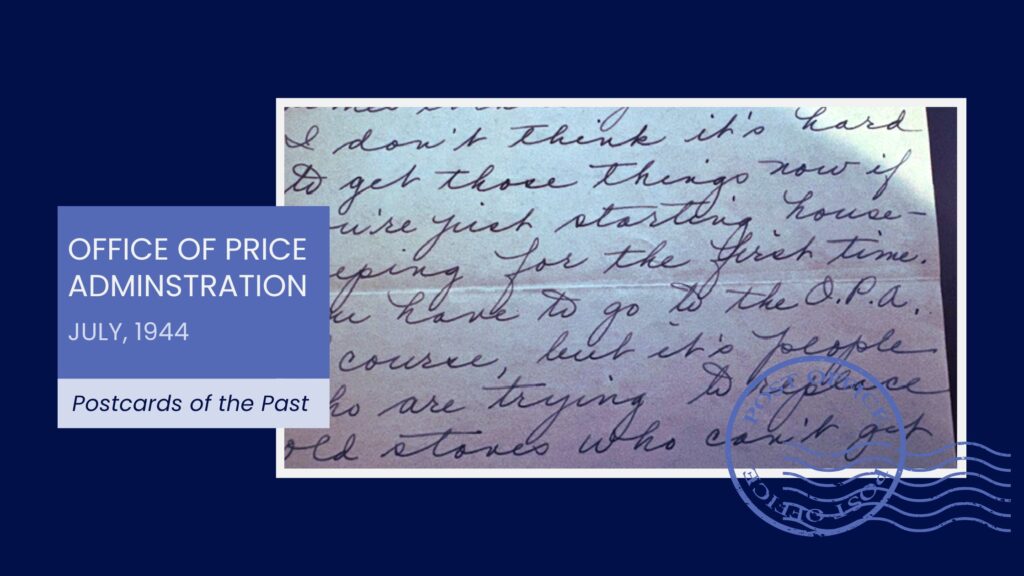 OFFICE OF PRICE
ADMINSTRATION
JULY, 1944
Postcards of the Past
I don't think it's hard
to get those things now if
u're just starting house-
eping for the first time.
u have to go to the O.P.A.
course, but it's people
ho are trying to replace
old stoves who can't get
POST OFFICE
POST OFFICE